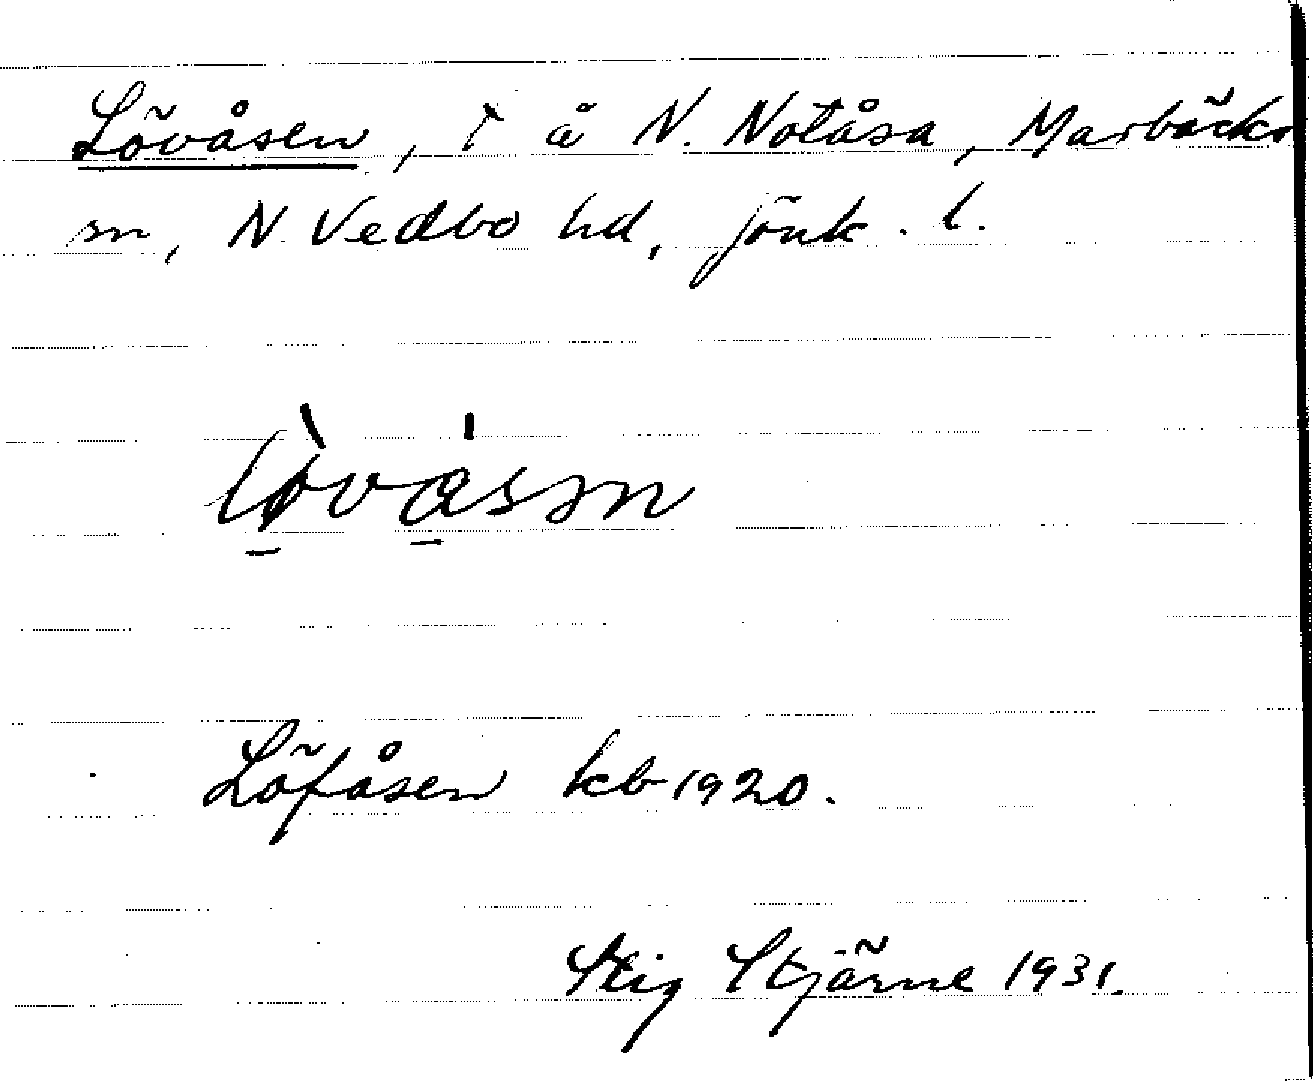 Lövåsen, T å N. Notåsa, Marbäcks
sn, N. Vedbo hd, Jönk. l.
lø̀vásn
Löfåsen kb 1920.
Stig Stjärne 1931.